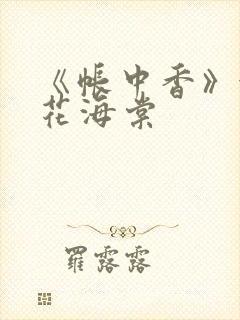 《帳中香》
花海棠
羅露露